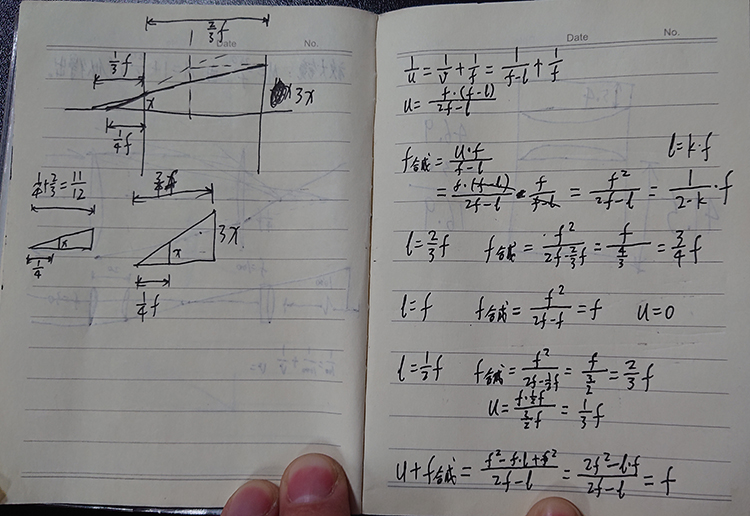 2/3 f
Date No.
1/3 f
x
3x
1/4 f
1/4+2/3=11/12
x
1/4
3/4 f
x
3x
1/4 f
Date No.
1/u = 1/v + 1/f = 1/(f-l) + 1/f
u = f·(f-l)/(2f-l)
f合成 = u·f/(f-l) l=k·f
= f·(f-l)/(2f-l) · f/(f-l) = f²/(2f-l) = 1/(2-k) · f
l=2/3 f f合成 = f²/(2f-2/3 f) = f/(4/3) = 3/4 f
l=f f合成 = f²/(2f-f) = f u=0
l=1/2 f f合成 = f²/(2f-1/2 f) = f/(3/2) = 2/3 f
u = (f·1/2 f)/(3/2 f) = 1/3 f
u+f合成 = (f²-f·l+f²)/(2f-l) = (2f²-l·f)/(2f-l) = f